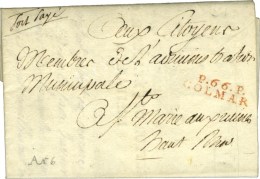 Port Payé
Deux Citoyens
Membres de l'administration
Municipale
P.66.P.
COLMAR
Ste Marie aux mines
haut Rhin